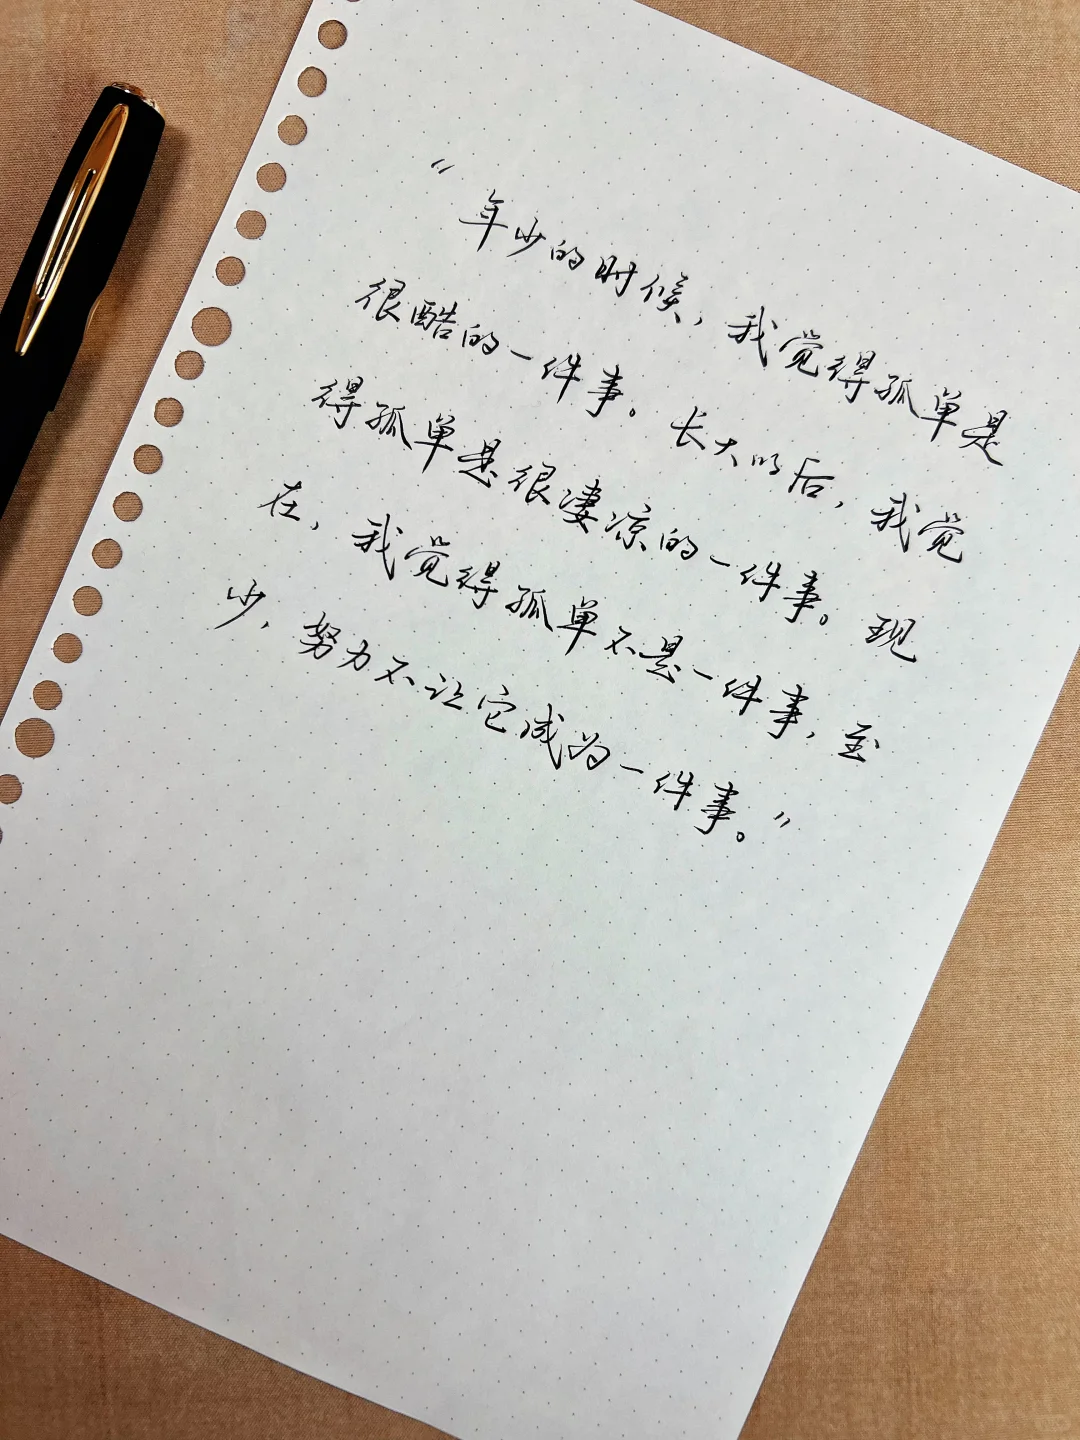 “年少的时候，我觉得孤单是
很酷的一件事。长大以后，我觉
得孤单是很凄凉的一件事。现
在，我觉得孤单不是一件事，至
少，努力不让它成为一件事。”